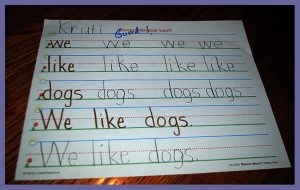 Kruti Good!
We We We We
like like like like
dogs dogs dogs dogs
We like dogs.
We like dogs.